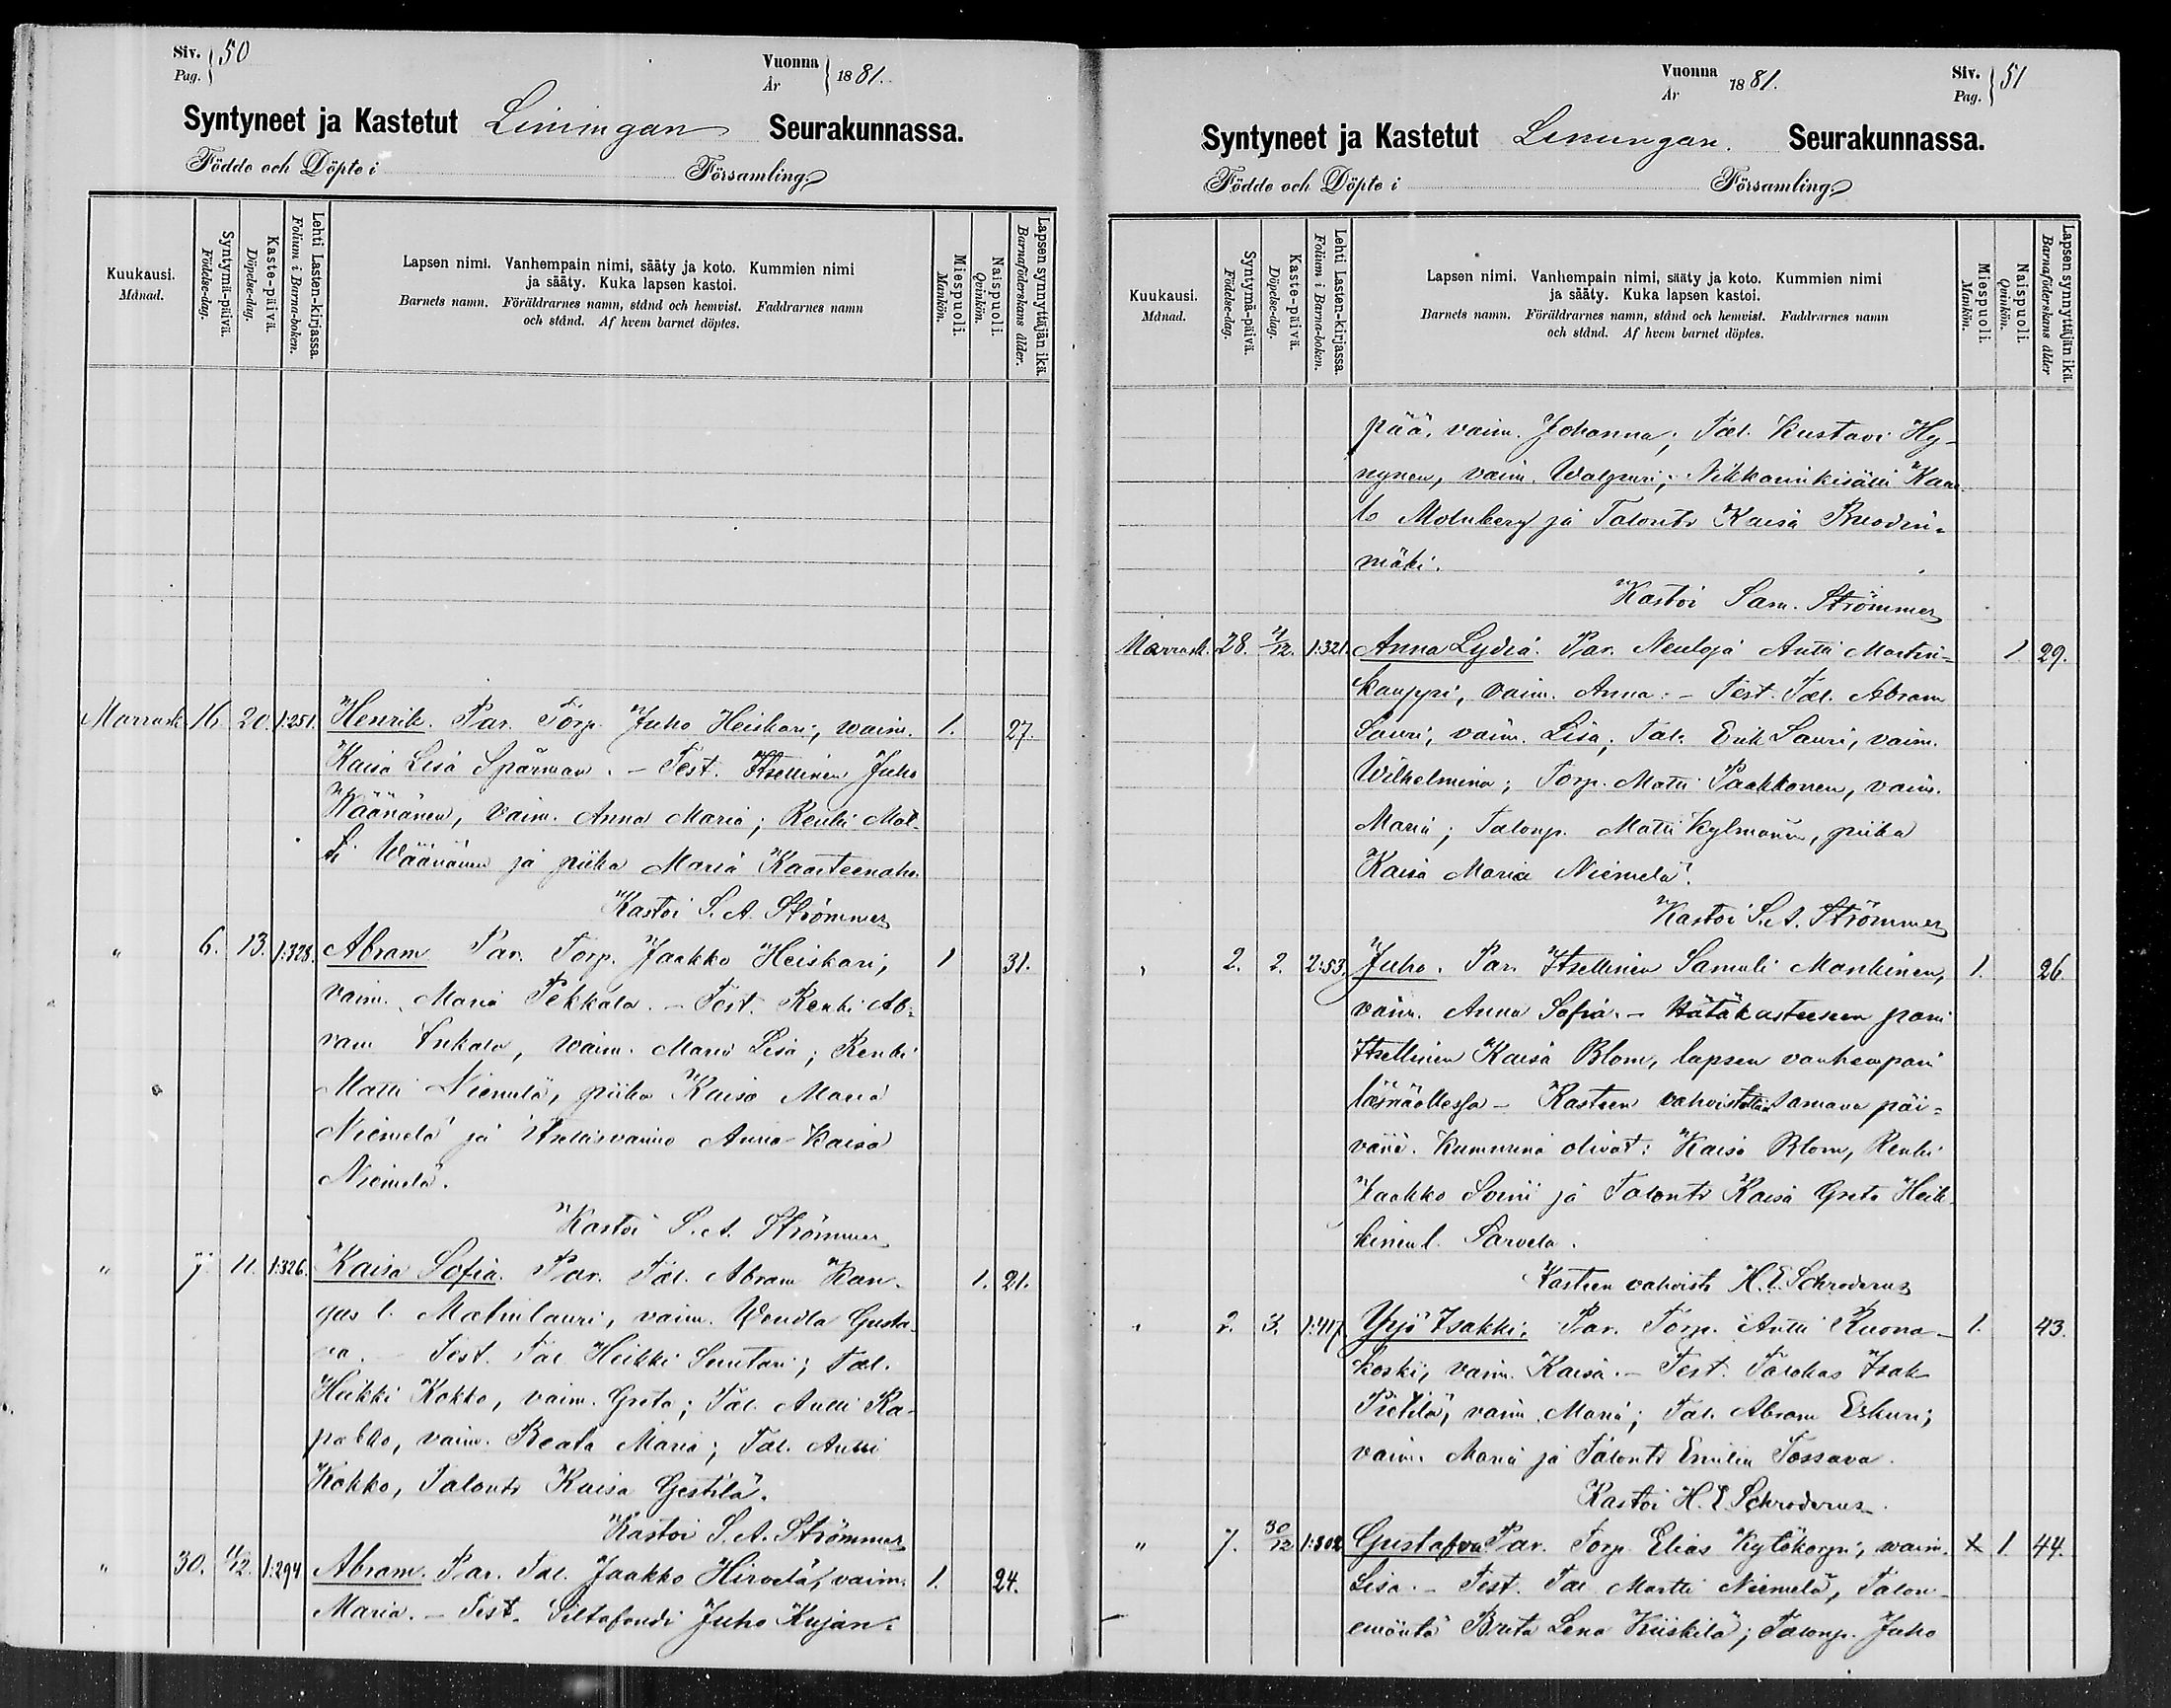 Siv. 50
Pag.
Vuonna
År
1881.
Syntyneet ja Kastetut Limingan Seurakunnassa.
Födde och Döpte i Församling
Kuukausi.
Månad.
Syntymä-päivä.
Födelse-dag.
Kaste-päivä.
Döpelse-dag.
Lehti Lasten-kirjassa.
Folium i Barna-boken.
Lapsen nimi. Vanhempain nimi, sääty ja koto. Kummien nimi
ja sääty. Kuka lapsen kastoi.
Barnets namn. Föräldrarnes namn, stånd och hemvist. Faddrarnes namn
och stånd. Af hvem barnet döptes.
Miespuoli.
Mankön.
Naispuoli.
Qvinkön.
Lapsen synnyttäjän ikä.
Barnaföderskans ålder.
Marrask. 16. 20. 1:251. Henrik. Par. Torp. Juho Heiskari, waim. 1. 27.
Kaisa Lisa Spärman. - Test. Itsellinen Juho
Väänänen, vaim. Anna Maria; Renki Mat-
ti Väänänen ja piika Maria Kaarteenaho
Kastoi S. A. Strömmer
" 6. 13. 1:328. Abram Par. Torp. Jaakko Heiskari, 1 31.
vaim. Maria Pekkala. - Test. Renki Ab-
ram Inkala, waim. Maria Lisa; Renki
Matti Niemelä, piika Kaisa Maria
Niemelä ja Anna Kaisa
Niemelä.
Kastoi S. A. Strömmer
" 7. 11. 1:326. Kaisa Sofia. Par. Tal. Abram Kan-
gas l. Matinlauri, vaim. Wendla Gusta- 1. 21.
va. - Test. Tal. Heikki ; Tal.
Heikki Kokko, vaim. Greta; Tal. Antti Ra-
pakko, vaim. Beata Maria; Tal. Antti
Kokko, Talontr Kaisa Gestilä.
Kastoi S. A. Strömmer
" 30. 4/12. 1:294 Abram. Par. Tal. Jaakko Hirvelä, vaim. 1. 24.
Maria. - Test. Siltafouti Juho Kujan-
Vuonna
År
1881.
Siv. 51
Pag.
Syntyneet ja Kastetut Limingan. Seurakunnassa.
Födde och Döpte i Församling
Kuukausi.
Månad.
Syntymä-päivä.
Födelse-dag.
Kaste-päivä.
Döpelse-dag.
Lehti Lasten-kirjassa.
Folium i Barna-boken.
Lapsen nimi. Vanhempain nimi, sääty ja koto. Kummien nimi
ja sääty. Kuka lapsen kastoi.
Barnets namn. Föräldrarnes namn, stånd och hemvist. Faddrarnes namn
och stånd. Af hvem barnet döptes.
Miespuoli.
Mankön.
Naispuoli.
Qvinkön.
Lapsen synnyttäjän ikä.
Barnaföderskans ålder
pää, vaim. Johanna; Tal. Kustavi Hy-
nynen, vaim. Walpuri; Nikkarinkisälli Kaar-
lo Molnberg ja Talontr Kaisa
mäki.
Kastoi Sam. Strömmer
Marrask. 28. 4/12. 1:321. Anna Lydia. Par. Neuloja Antti Martin- 1. 29.
kauppi, vaim. Anna. - Test. Tal. Abram
Lauri, vaim. Lisa; Tal. Erik Lauri, vaim.
Wilhelmina; Torp. Matti Paakkonen, vaim.
Maria; Talonp. Matti Kylmänen, piika
Kaisa Maria Niemelä.
Kastoi S. A. Strömmer
" 2. 2. 2:53. Juho. Par. Itsellinen Samuli Manninen, 1. 26.
vaim. Anna Sofia. - Hätäkasteeseen pani
Itsellinen Kaisa Blom, lapsen vanhempain
läsnäollessa - Kasteen vahvistettiin samana päi-
vänä. Kummina olivat: Kaisa Blom, Renki
Jaakko Sorni ja Talontr Kaisa Greta Heik-
kinen l. Sarvela.
Kasteen vahvisti H. E. Schroderus
" 2. 3. 1:417. Yrjö Isakki. Par. Torp. Antti Ruona- 1. 43.
koski, vaim. Kaisa. - Test. Talokas Isak
Pietilä, vaim. Maria; Tal. Abram Eskuri;
vaim. Maria ja Talontr Emilia Tossava.
Kastoi H. E. Schroderus.
" 7. 30/12 1:302 Gustafva. Par. Torp. Elias Kytökorpi, vaim. x 1. 44.
Lisa. - Test. Tal. Martti Niemelä, Talon-
emäntä Brita Lena Kiiskilä; Talonp. Juho